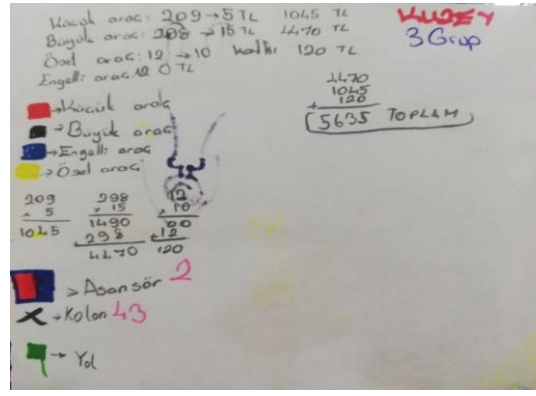 Küçük araç: 209 → 5 TL 1045 TL
Büyük araç: 298 → 15 TL 4470 TL
Özel araç: 12 → 10 katkı 120 TL
Engelli araç 12 0 TL
KUZEY
3 Grup
4470
1045
+ 120
5635 TOPLAM
→ Küçük araç
→ Büyük araç
→ Engelli araç
→ Özel araç
209
x 5
1045
298
x 15
1490
+ 298
4470
12
x 10
00
+ 12
120
> Asansör 2
X → Kolon 43
→ Yol